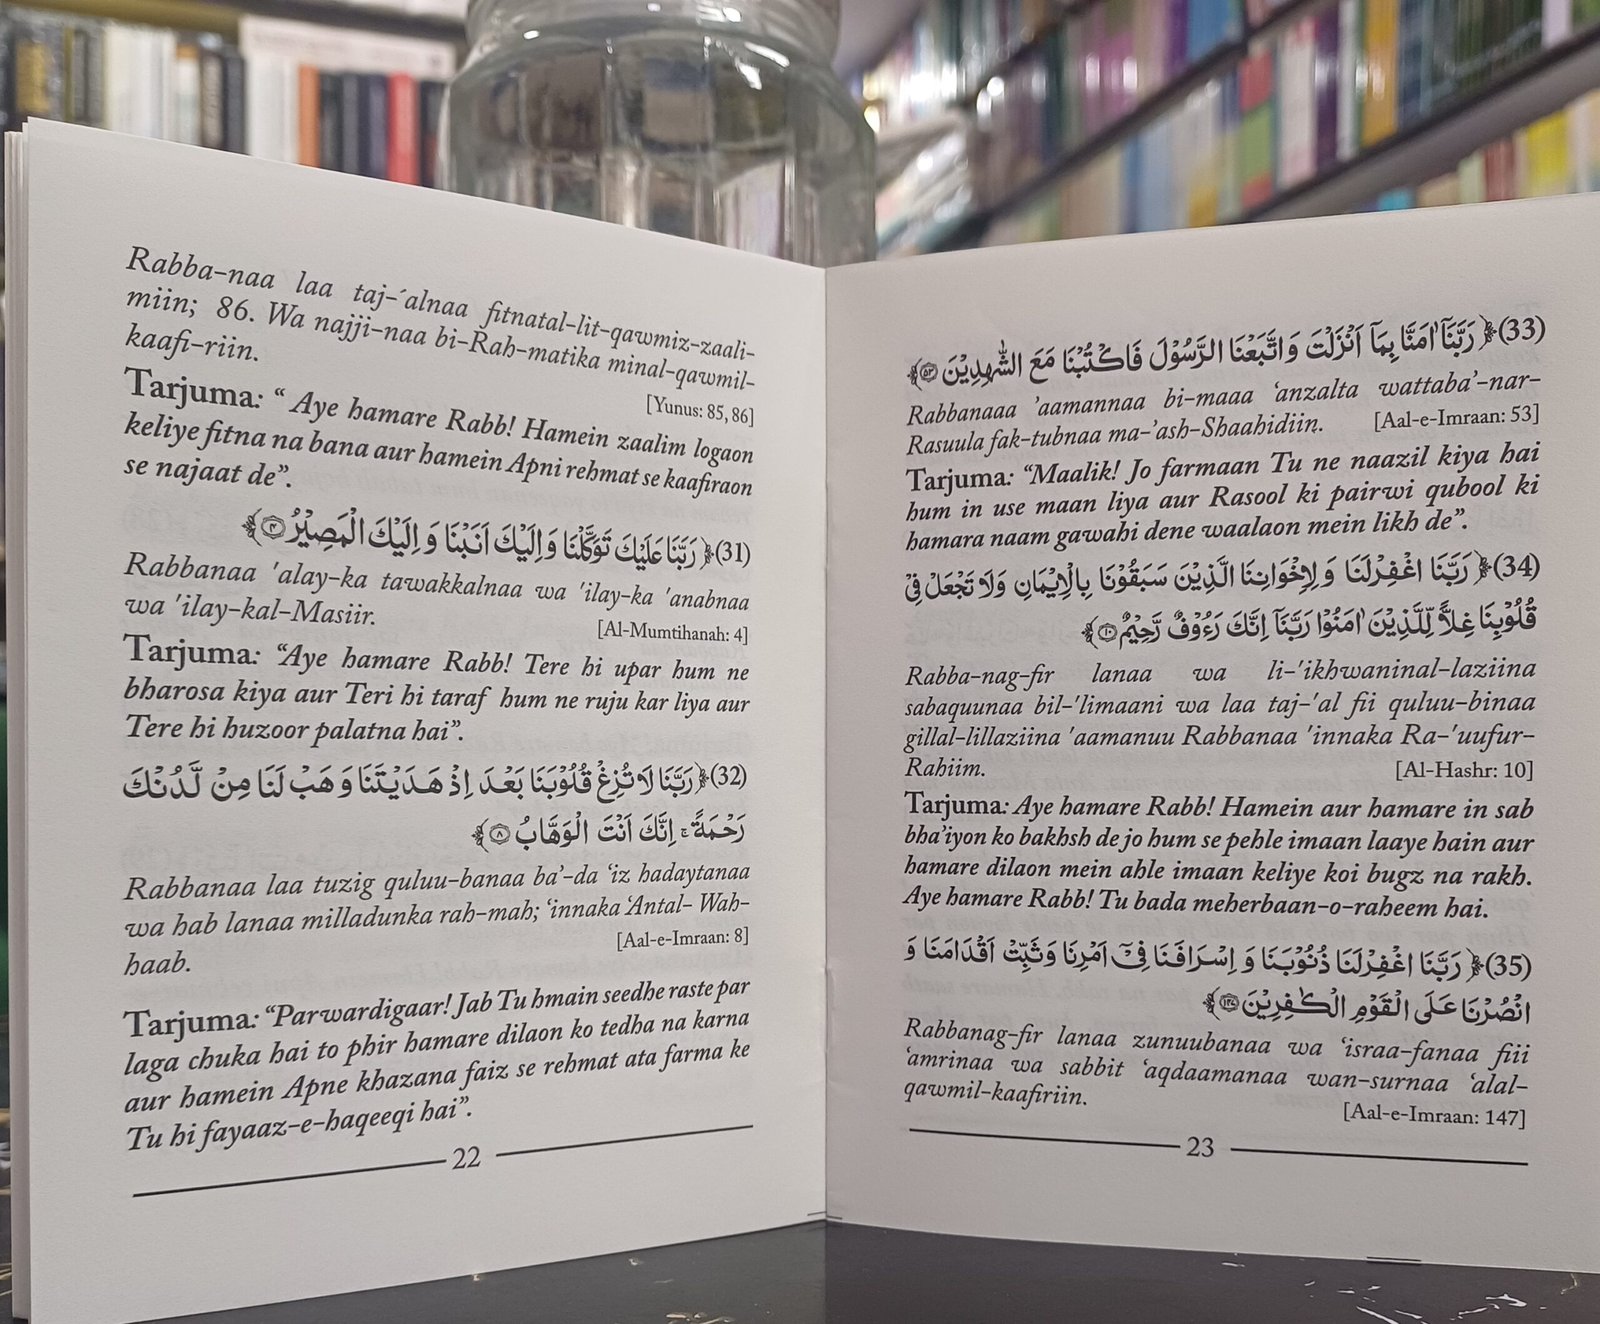 Rabba-naa laa taj-´alnaa fitnatal-lit-qawmiz-zaali-
miin; 86. Wa najji-naa bi-Rah-matika minal-qawmil-
kaafi-riin.
[Yunus: 85, 86]
Tarjuma: “ Aye hamare Rabb! Hamein zaalim logaon
keliye fitna na bana aur hamein Apni rehmat se kaafiraon
se najaat de”.
(31)﴿رَبَّنَا عَلَيْكَ تَوَكَّلْنَا وَاِلَيْكَ اَنَبْنَا وَ اِلَيْكَ الْمَصِيْرُ ۴﴾
Rabbanaa 'alay-ka tawakkalnaa wa 'ilay-ka 'anabnaa
wa 'ilay-kal-Masiir. [Al-Mumtihanah: 4]
Tarjuma: “Aye hamare Rabb! Tere hi upar hum ne
bharosa kiya aur Teri hi taraf hum ne ruju kar liya aur
Tere hi huzoor palatna hai”.
(32)﴿رَبَّنَا لَا تُزِغْ قُلُوْبَنَا بَعْدَ اِذْ هَدَيْتَنَا وَ هَبْ لَنَا مِنْ لَّدُنْكَ
رَحْمَةً ۚ اِنَّكَ اَنْتَ الْوَهَّابُ ۸﴾
Rabbanaa laa tuzig quluu-banaa ba’-da ‘iz hadaytanaa
wa hab lanaa milladunka rah-mah; ‘innaka ‘Antal- Wah-
haab. [Aal-e-Imraan: 8]
Tarjuma: “Parwardigaar! Jab Tu hmain seedhe raste par
laga chuka hai to phir hamare dilaon ko tedha na karna
aur hamein Apne khazana faiz se rehmat ata farma ke
Tu hi fayaaz-e-haqeeqi hai”.
22
(33)﴿رَبَّنَآ اٰمَنَّا بِمَآ اَنْزَلْتَ وَاتَّبَعْنَا الرَّسُوْلَ فَاكْتُبْنَا مَعَ الشّٰهِدِيْنَ ۵۳﴾
Rabbanaaa ’aamannaa bi-maaa ‘anzalta wattaba’-nar-
Rasuula fak-tubnaa ma-’ash-Shaahidiin. [Aal-e-Imraan: 53]
Tarjuma: “Maalik! Jo farmaan Tu ne naazil kiya hai
hum in use maan liya aur Rasool ki pairwi qubool ki
hamara naam gawahi dene waalaon mein likh de”.
(34)﴿رَبَّنَا اغْفِرْلَنَا وَ لِاِخْوَانِنَا الَّذِيْنَ سَبَقُوْنَا بِالْاِيْمَانِ وَلَا تَجْعَلْ فِيْ
قُلُوْبِنَا غِلًّا لِّلَّذِيْنَ اٰمَنُوْا رَبَّنَآ اِنَّكَ رَءُوْفٌ رَّحِيْمٌ ۱۰﴾
Rabba-nag-fir lanaa wa li-'ikhwaninal-laziina
sabaquunaa bil-'limaani wa laa taj-'al fii quluu-binaa
gillal-lillaziina 'aamanuu Rabbanaa 'innaka Ra-'uufur-
Rahiim. [Al-Hashr: 10]
Tarjuma: Aye hamare Rabb! Hamein aur hamare in sab
bha’iyon ko bakhsh de jo hum se pehle imaan laaye hain aur
hamare dilaon mein ahle imaan keliye koi bugz na rakh.
Aye hamare Rabb! Tu bada meherbaan-o-raheem hai.
(35)﴿رَبَّنَا اغْفِرْلَنَا ذُنُوْبَنَا وَ اِسْرَافَنَا فِيْٓ اَمْرِنَا وَثَبِّتْ اَقْدَامَنَا وَ
انْصُرْنَا عَلَى الْقَوْمِ الْكٰفِرِيْنَ ۱۴۷﴾
Rabbanag-fir lanaa zunuubanaa wa ‘israa-fanaa fiii
‘amrinaa wa sabbit ‘aqdaamanaa wan-surnaa ‘alal-
qawmil-kaafiriin.
[Aal-e-Imraan: 147]
23